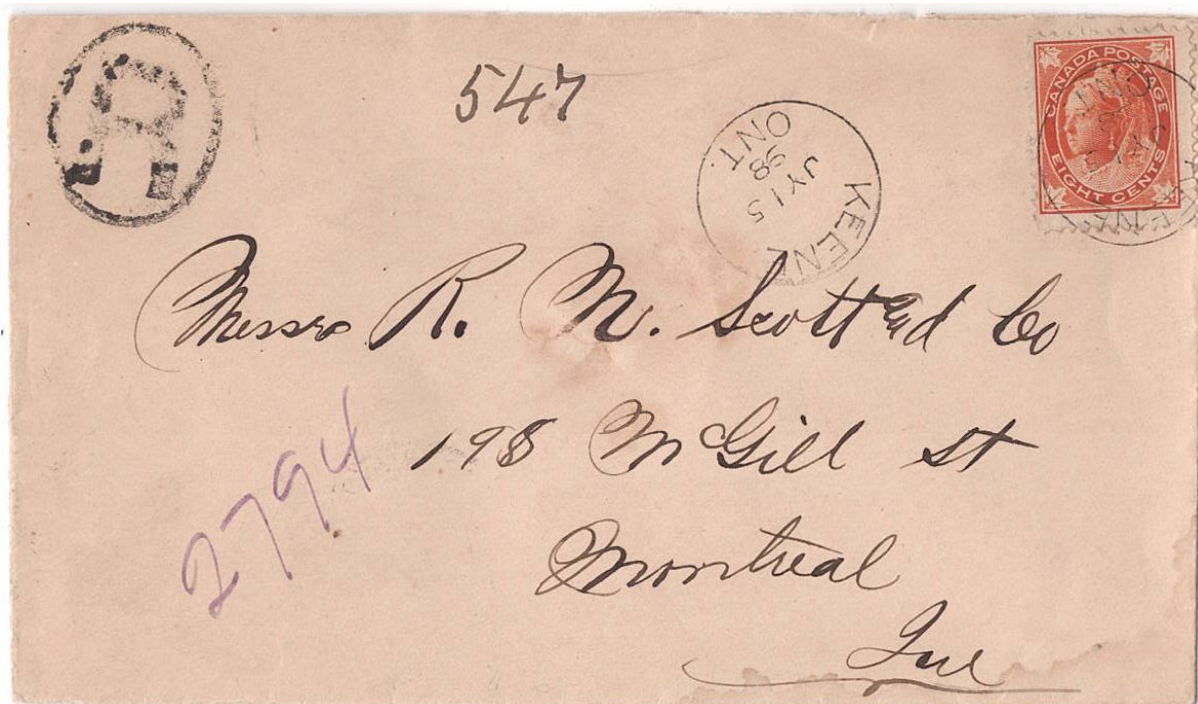 R
547
KEENE
JY 15
98
ONT.
CANADA POSTAGE
EIGHT CENTS
KEENE
JY 15
ONT
Messrs R. N. Scott and Co
198 McGill st
Montreal
Que
2794